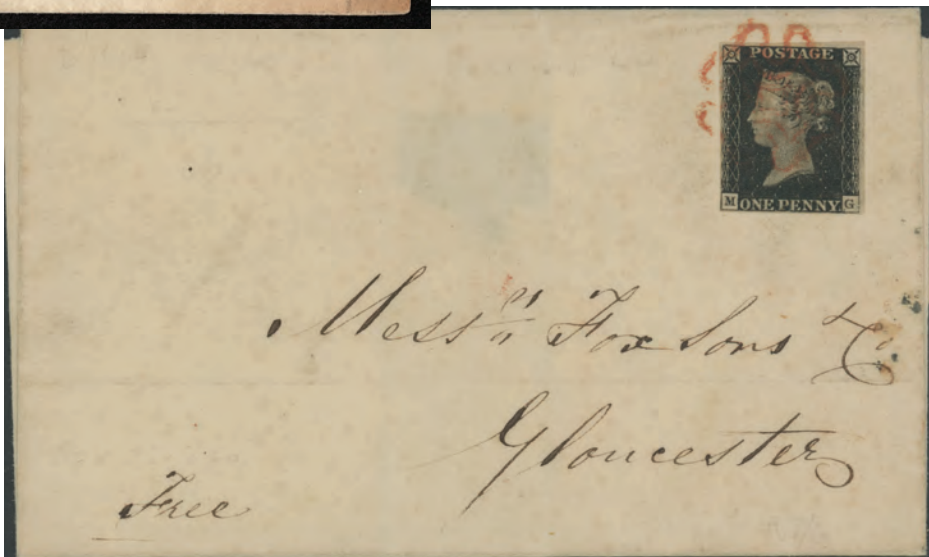 POSTAGE
M ONE PENNY G
Mess.rs Fox Sons & Co.
Gloucester
Free